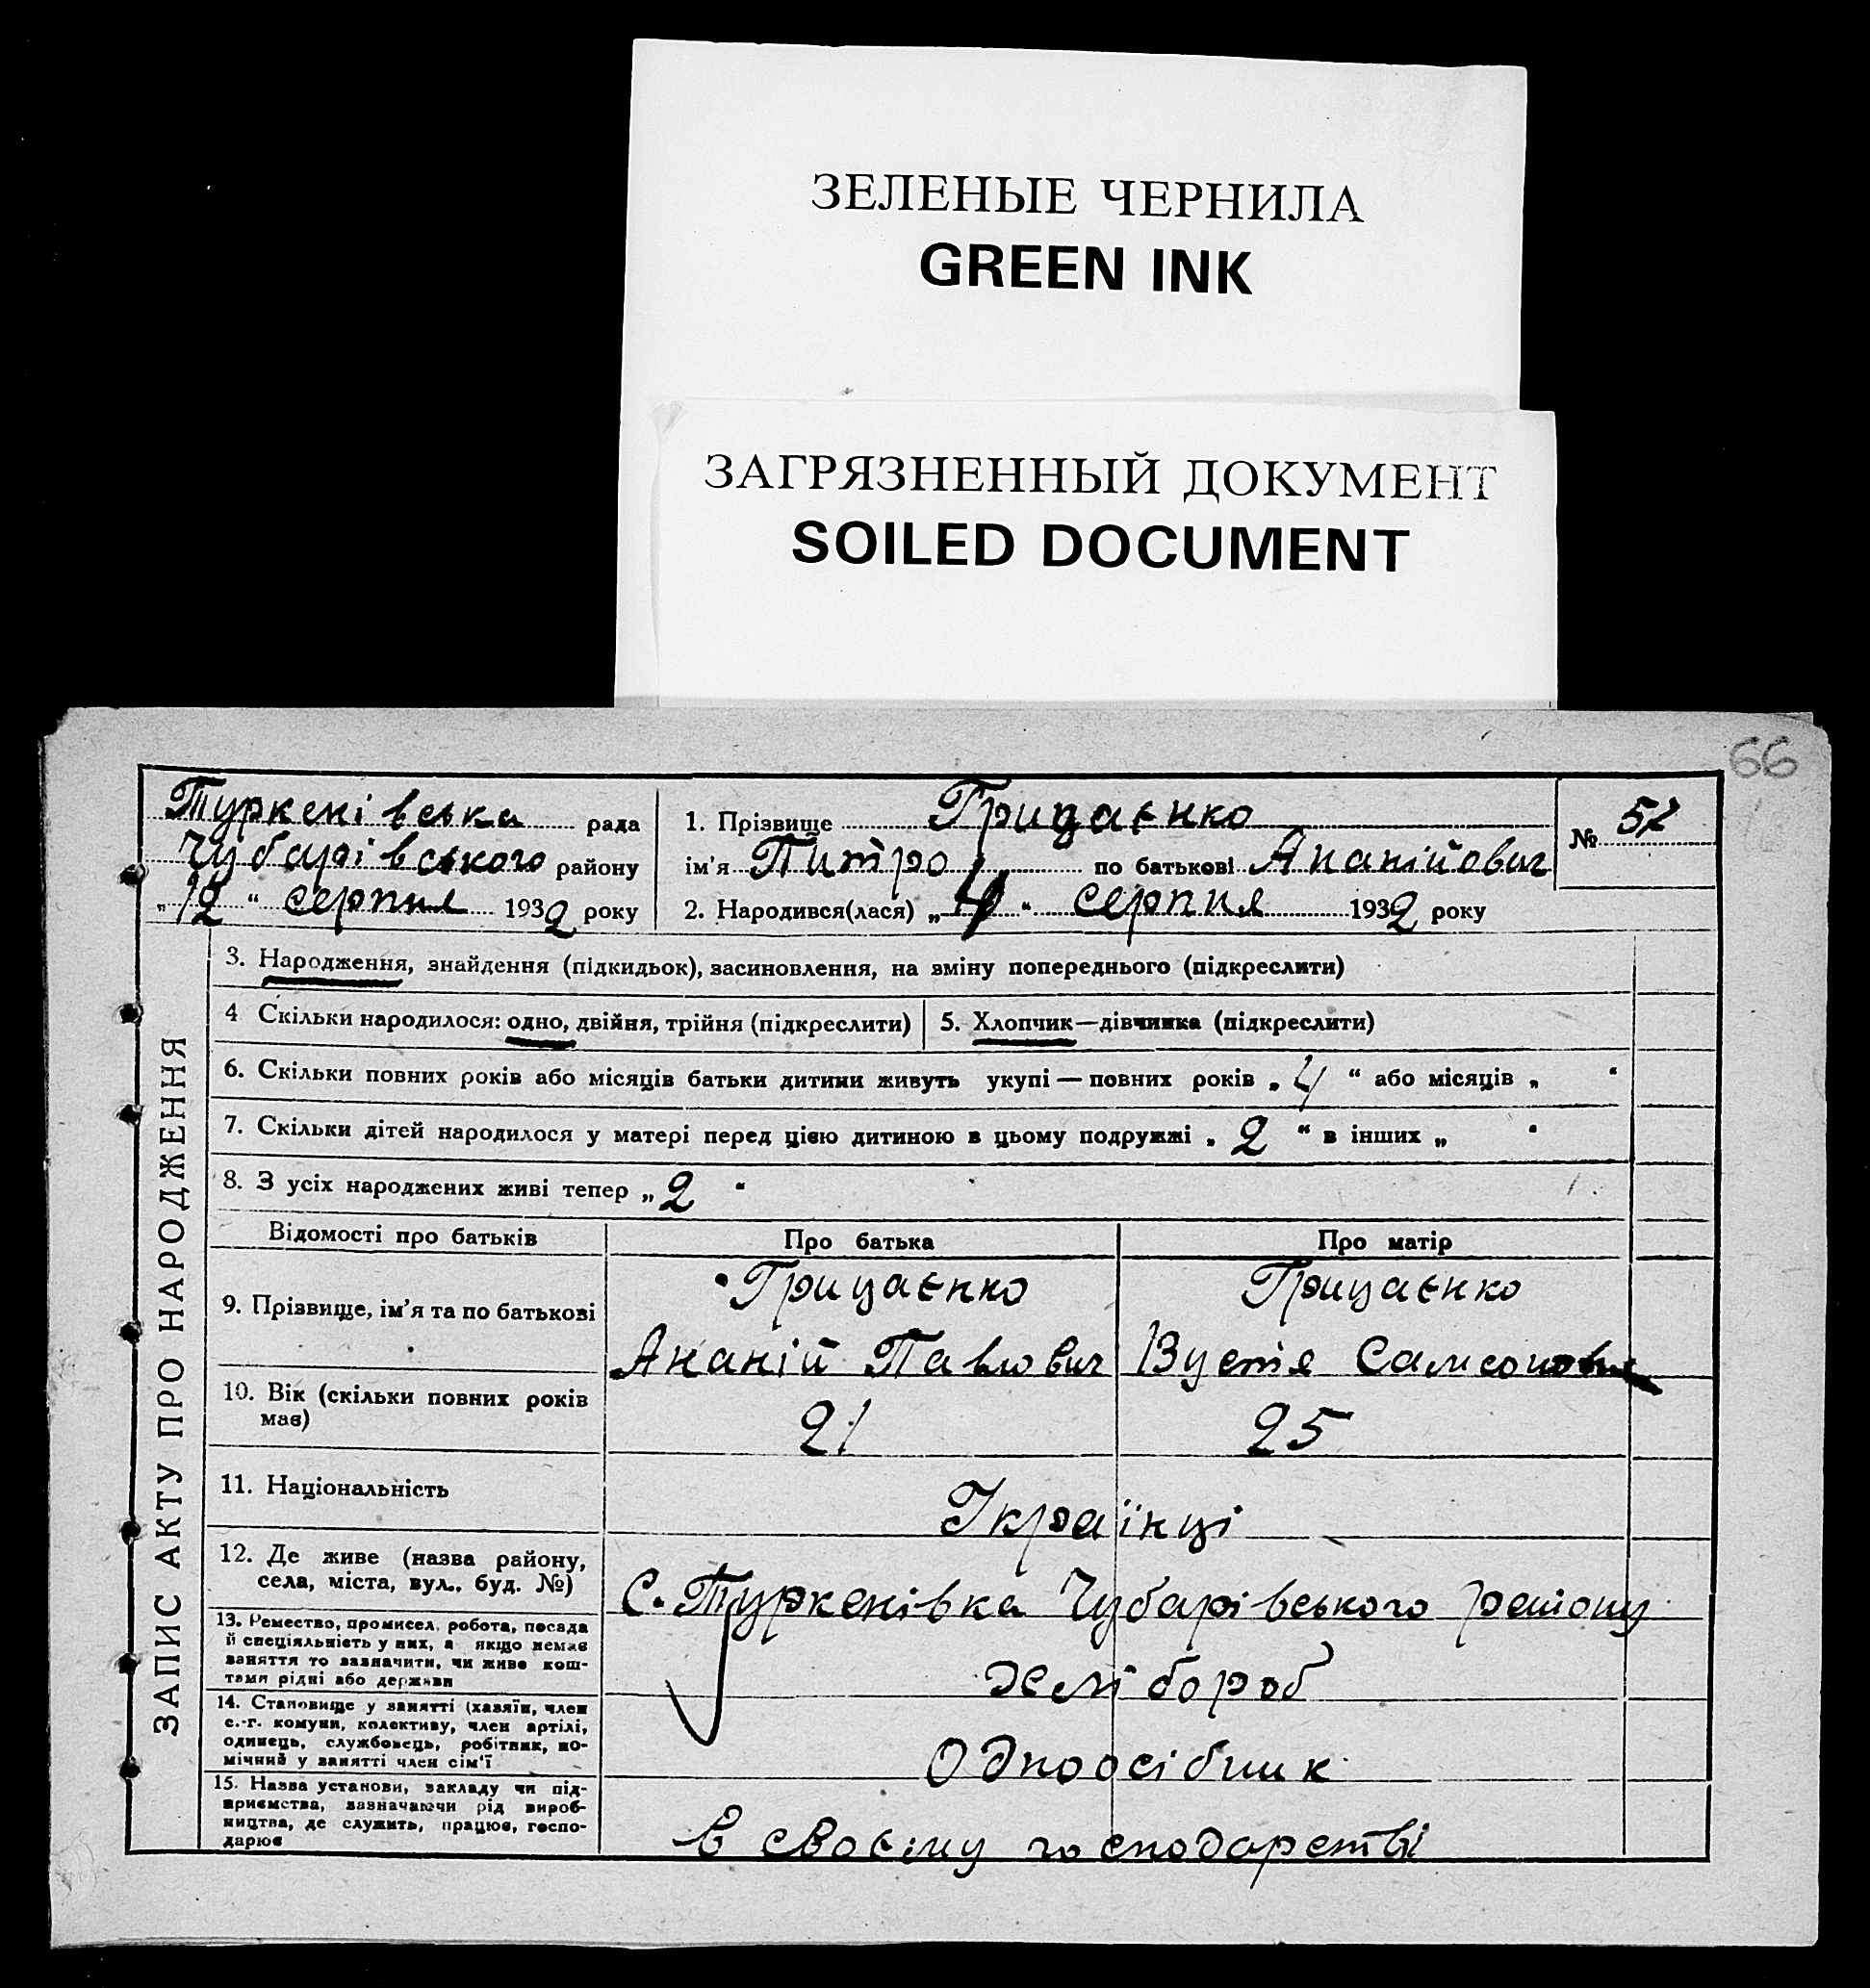 ЗЕЛЕНЫЕ ЧЕРНИЛА
GREEN INK
ЗАГРЯЗНЕННЫЙ ДОКУМЕНТ
SOILED DOCUMENT
66
Туркенівська рада
Чубарівського району
„12“ серпня 1932 року
1. Прізвище Грицаєнко
ім'я Питро по батькові Ананійович
2. Народився(лася) „4“ серпня 1932 року
№ 52
ЗАПИС АКТУ ПРО НАРОДЖЕННЯ
3. Народження, знайдення (підкидьок), засиновлення, на зміну попереднього (підкреслити)
4 Скільки народилося: одно, двійня, трійня (підкреслити) 5. Хлопчик—дівчинка (підкреслити)
6. Скільки повних років або місяців батьки дитини живуть укупі — повних років „4“ або місяців „ “
7. Скільки дітей народилося у матері перед цією дитиною в цьому подружжі „2“ в інших „ “
8. З усіх народжених живі тепер „2“
Відомості про батьків Про батька Про матір
Грицаєнко Грицаєнко
9. Прізвище, ім'я та по батькові
Ананій Павлович Вустя Самсоновна
10. Вік (скільки повних років
має)
21 25
11. Національність
Українці
12. Де живе (назва району,
села, міста, вул., буд. №)
С. Туркенівка Чубарівського району
13. Ремество, промисел, робота, посада
й спеціяльність у них, а якщо немає
заняття то зазначити, чи живе кош-
тами рідні або держави
Хлібороб
14. Становище у занятті (хазяїн, член
с.-г. комуни, колективу, член артілі,
одинець, службовець, робітник, по-
мічний у занятті член сім'ї
Одноосібник
15. Назва установи, закладу чи під-
приємства, зазначаючи рід вироб-
ництва, де служить, працює, госпо-
дарює
в своєму господарстві